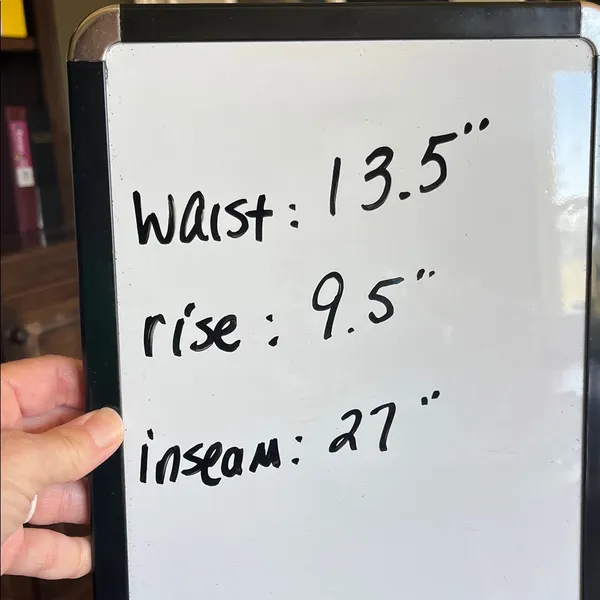 Waist: 13.5"
rise: 9.5"
inseam: 27"